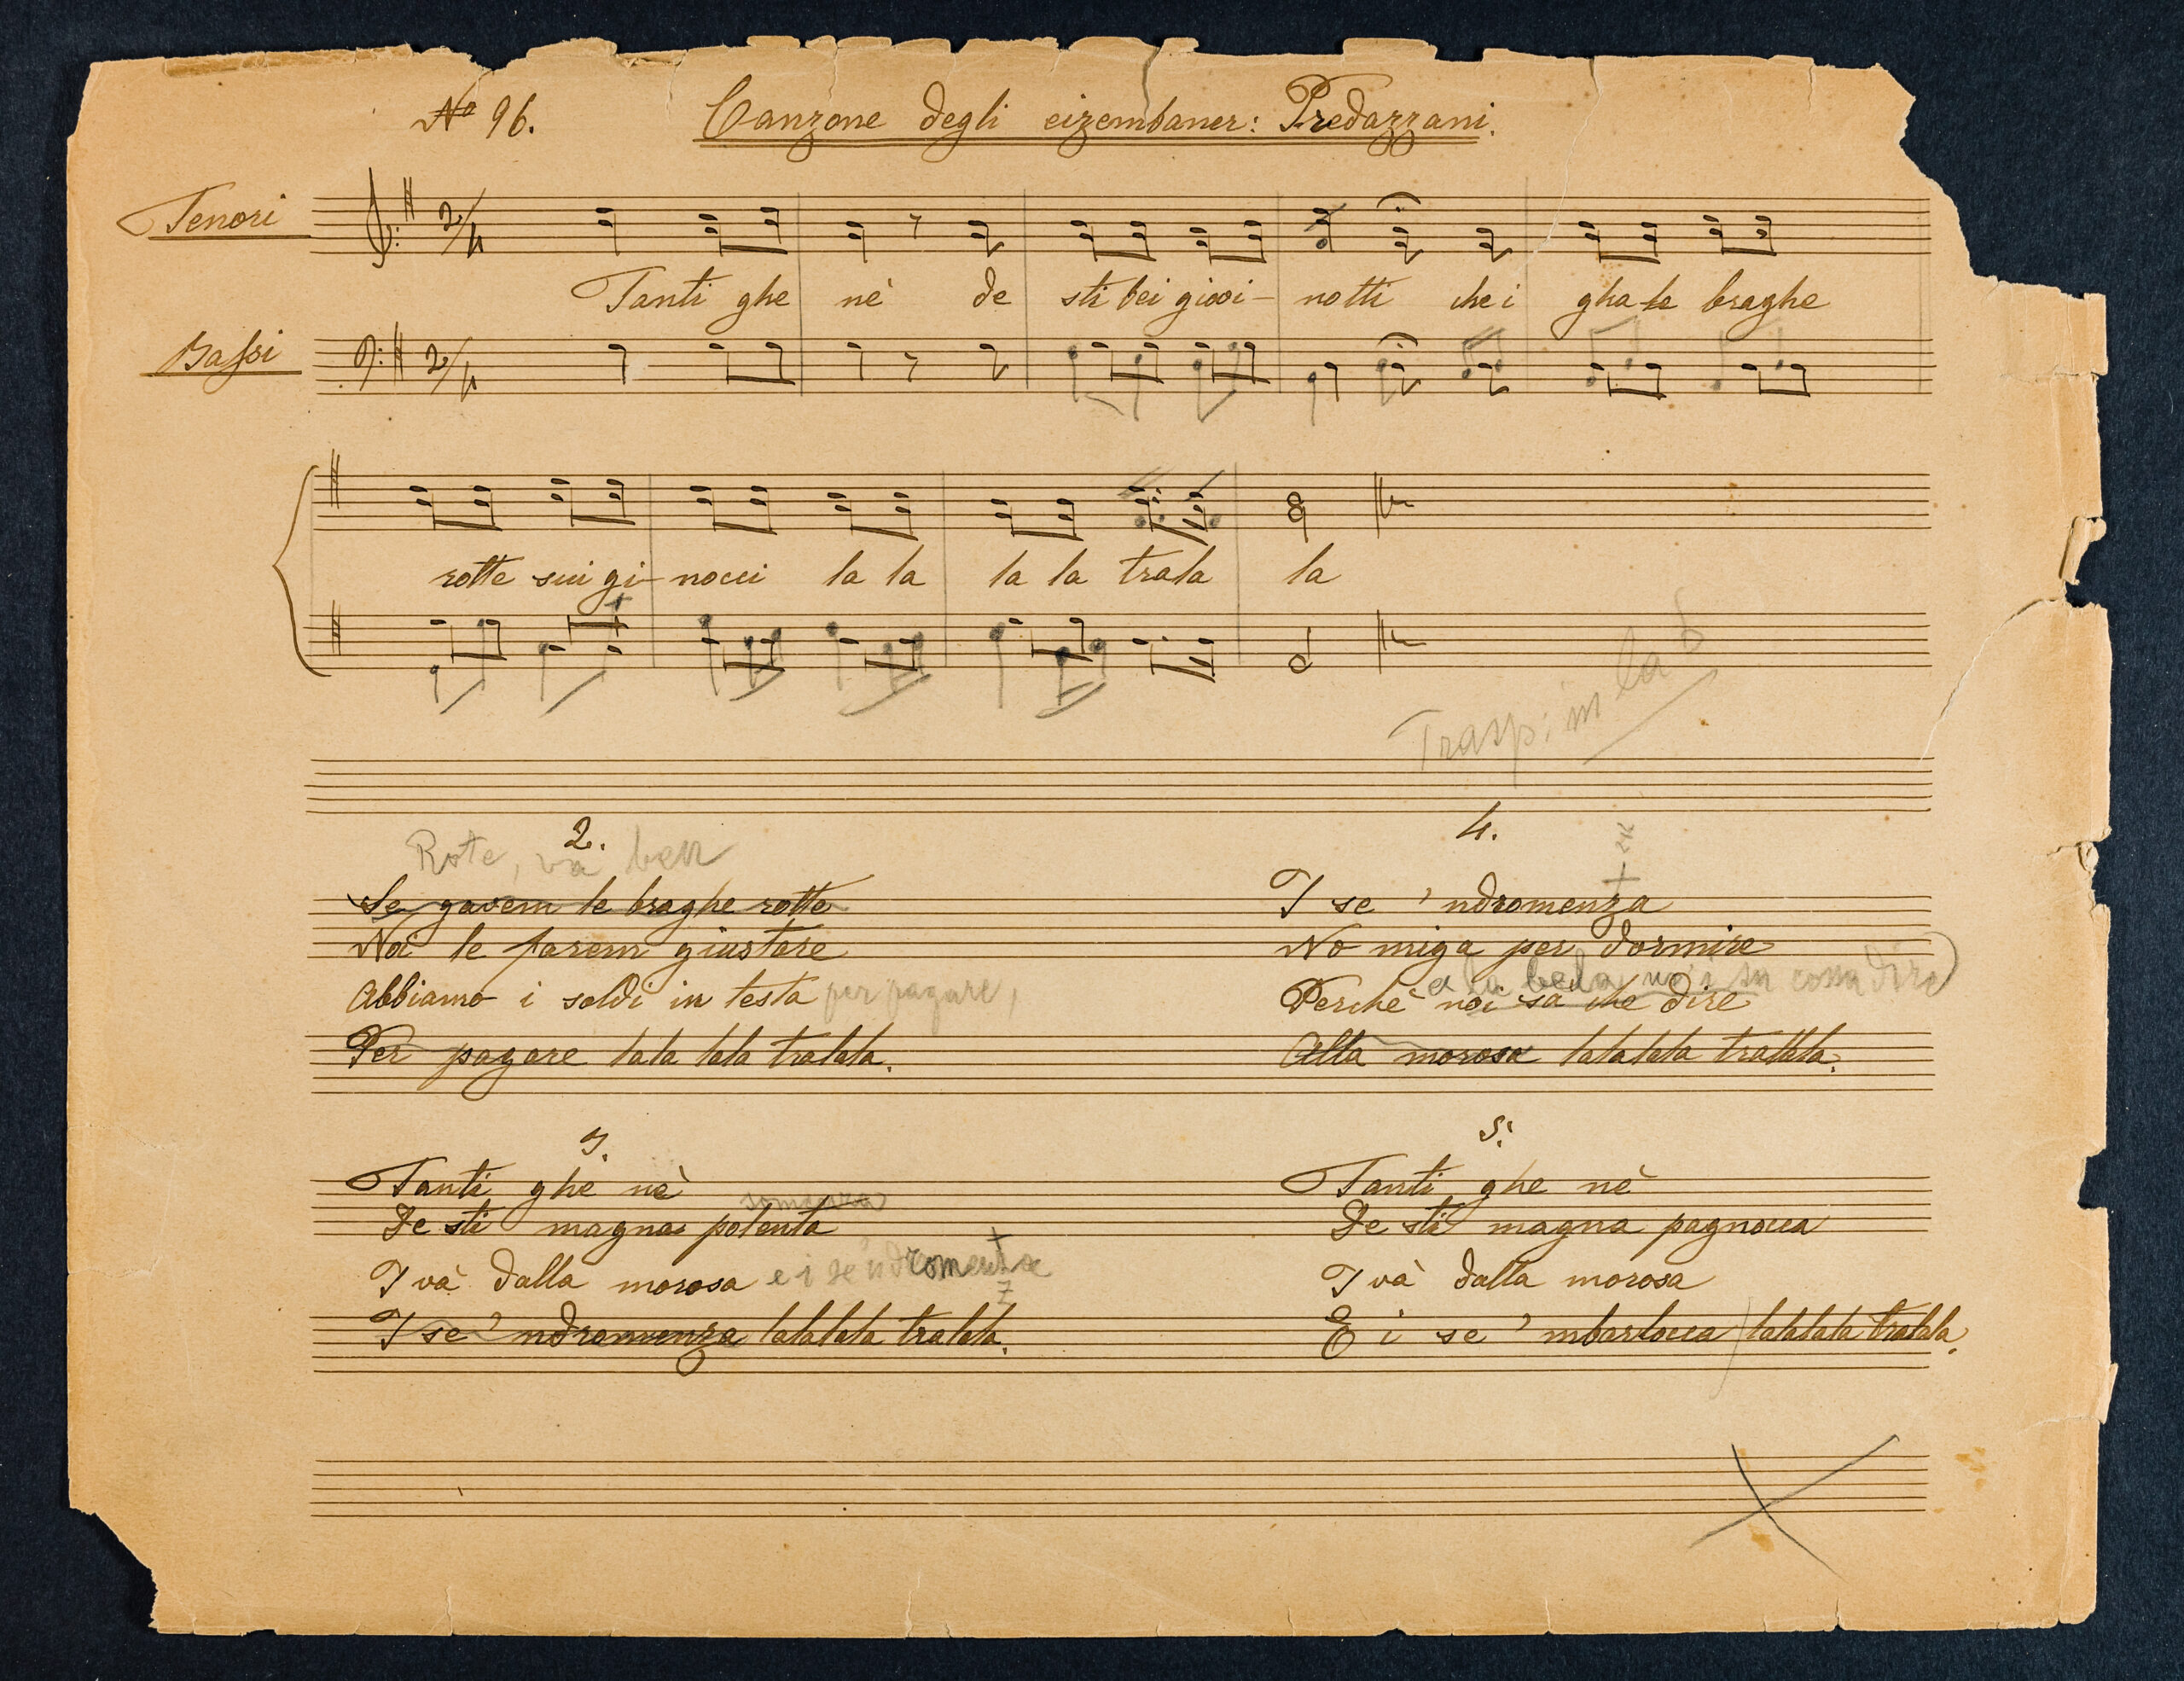 No 96. Canzone degli eizembaner: Predazzani.
Tenori
2/4
Tanti ghe nè de sti bei giovi- notti che i gha le braghe
Bassi
2/4
rotte sui gi- nocci la la la la trala la
Trasp: in la b
2.
Rote, va ben
Se gavem le braghe rotte
Noi le farem giustare
Abbiamo i soldi in testa per pagare,
Per pagare lala lala tralala.
3.
Tanti ghe nè
De sti magna polenta
I và dalla morosa e i se 'ndromenza
z
I se 'ndromenza lalalala tralala.
4.
I se 'ndromenza
No miga per dormire
a la bela no i sa cossa dire
Perchè noi sa che dire
Alla morosa lalalala tralala.
5.
Tanti ghe nè
De sti magna pagnocca
I và dalla morosa
E i se 'mbarlocca lalalala tralala.